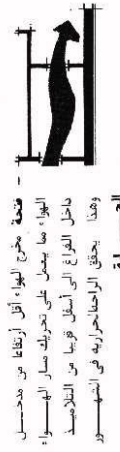 – فتحة مخرج الهواء أقل أرتفاعا من مدخــــل
الهواء مما يعمل على تحريك مسار الهـــــواء
داخل الفراغ الى أسفل قريبا من التلاميــــذ
وهذا يحقق الراحة الحرارية فى الشهـــــور